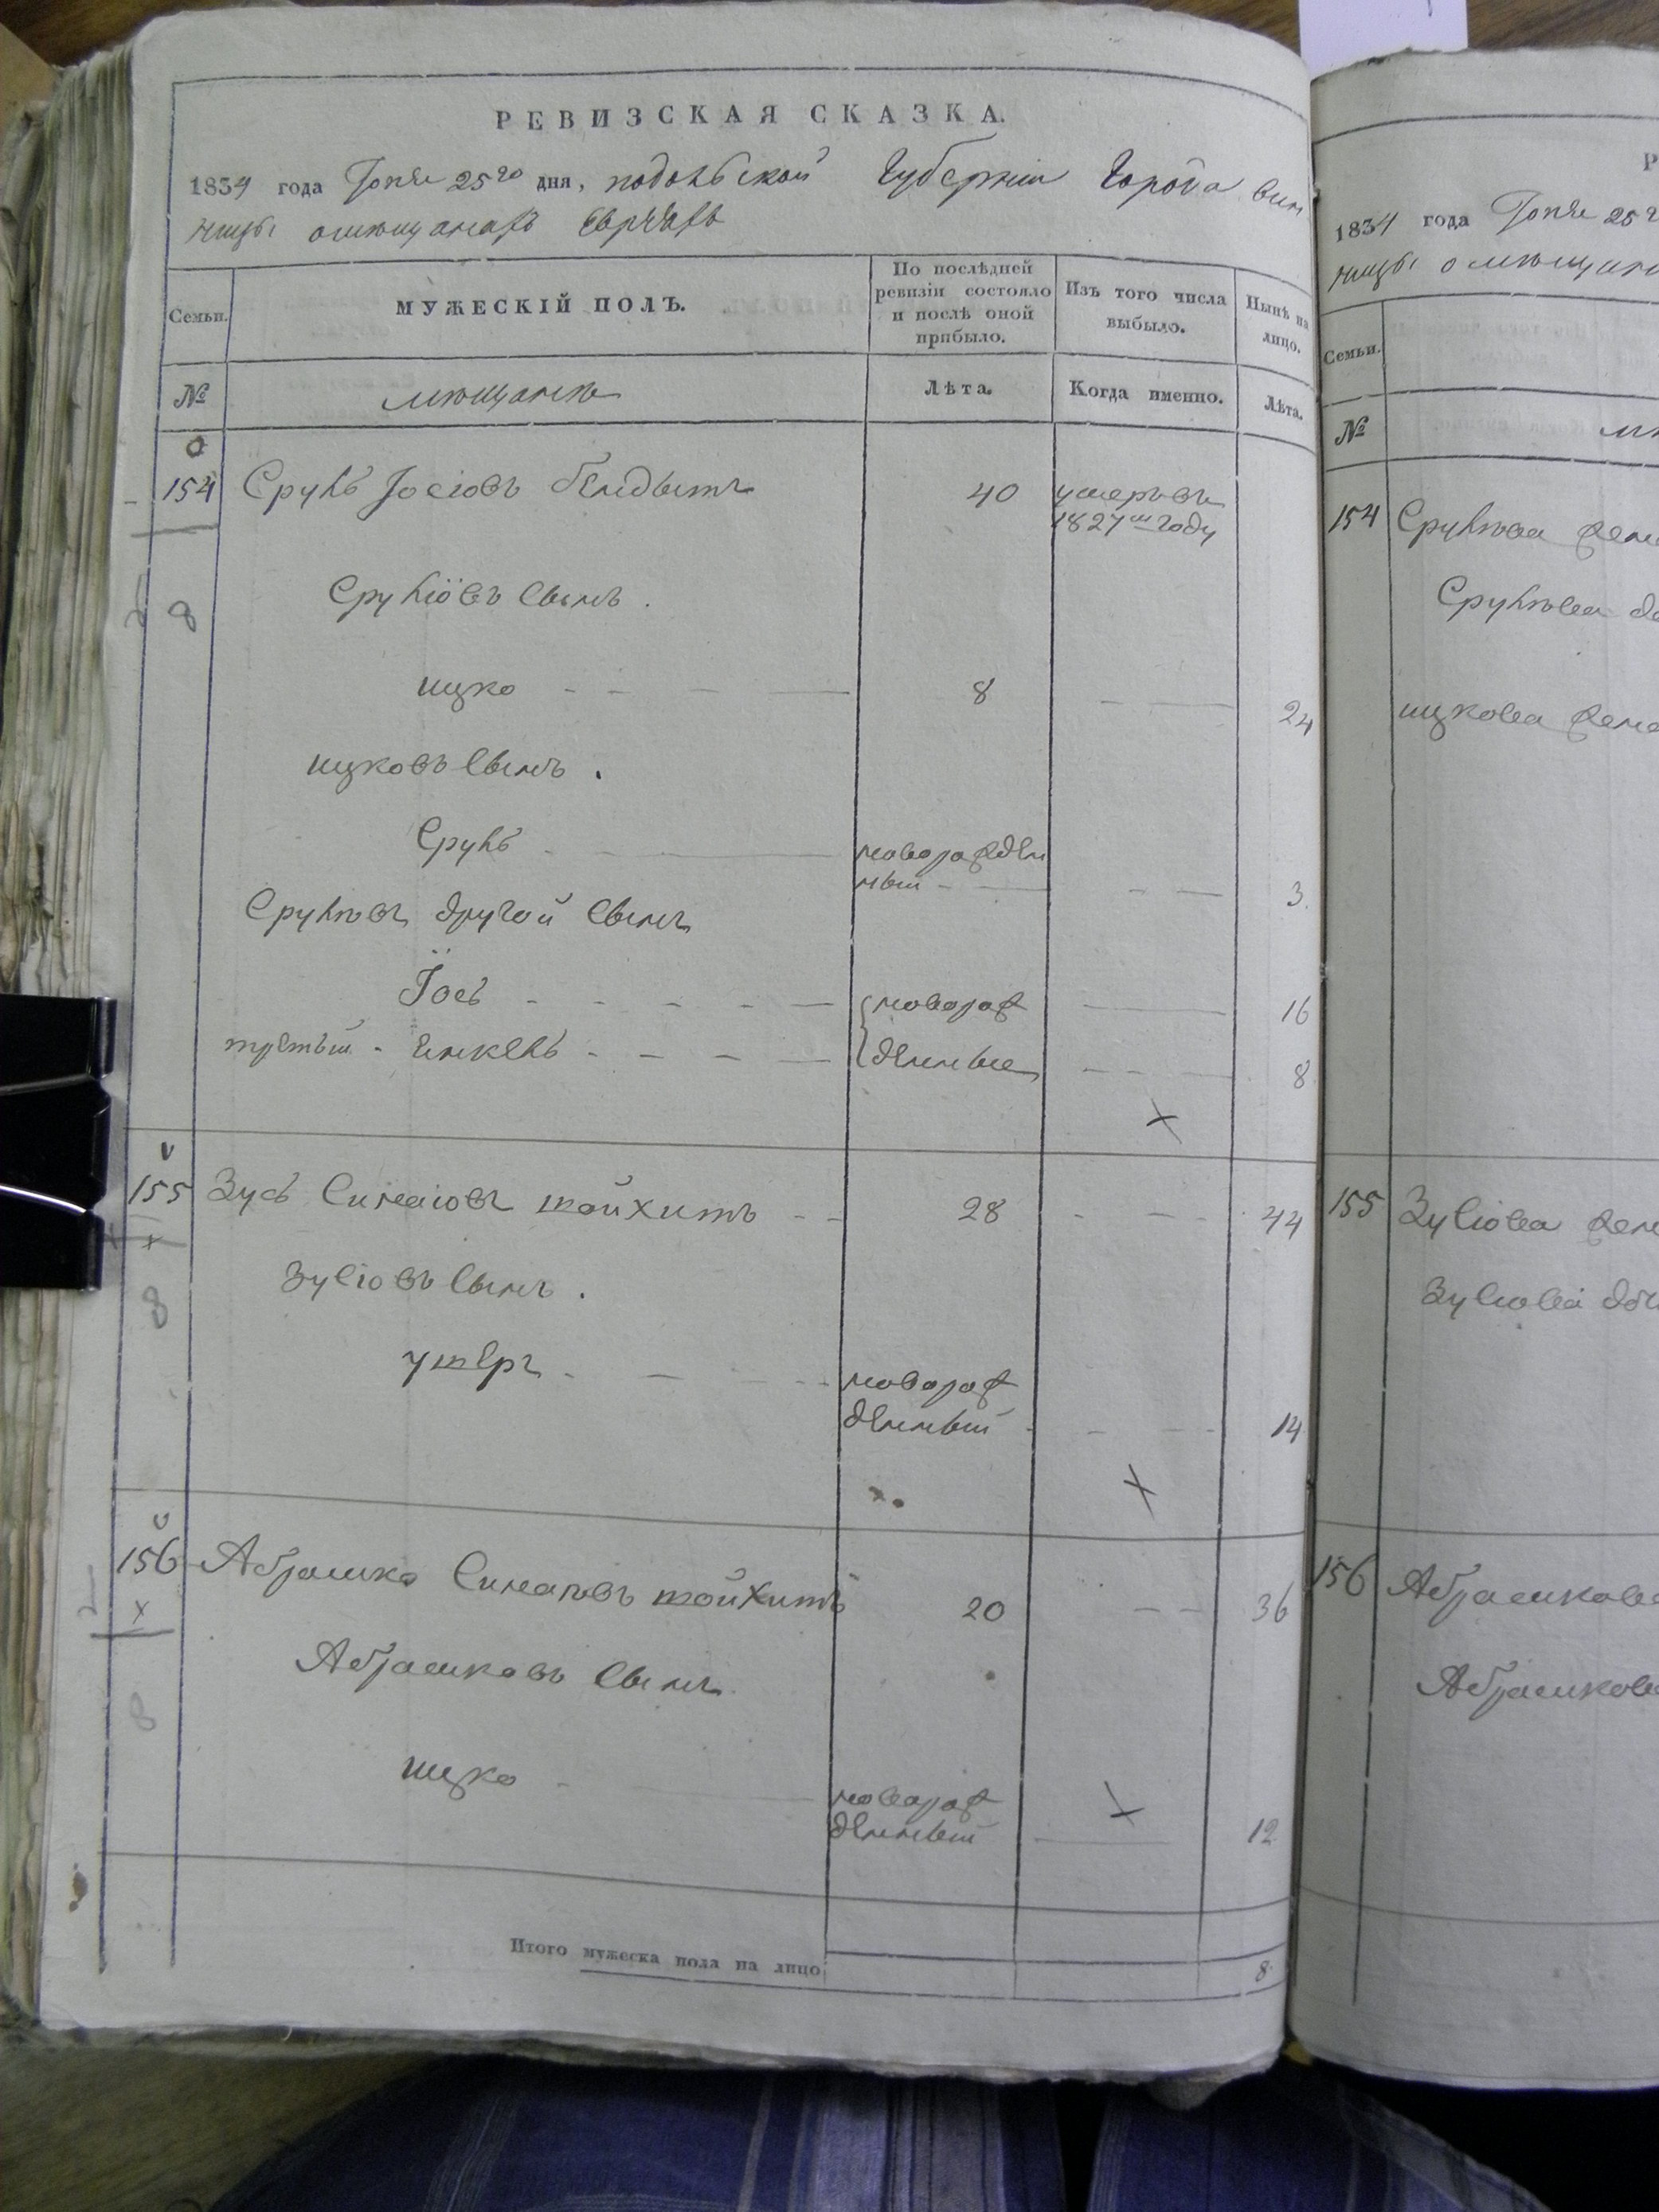 РЕВИЗСКАЯ СКАЗКА.
1834 года Iюня 25го дня, подольской Губернiи Города вин
ницы омѣщанахъ Евреяхъ
Семьи.
МУЖЕСКIЙ ПОЛЪ.
По послѣдней ревизiи состояло и послѣ оной прибыло.
Изъ того числа выбыло.
Нынѣ на лицо.
№
мѣщане
Лѣта.
Когда именно.
Лѣта.
154 Сруль Iосiовъ 40 умеръ въ
1827м году
8 Срулiовъ Сынъ.
ицко 8 24
ицковъ Сынъ.
Сруль новорожден
ный 3
Срулѣовъ другой Сынъ
Iось новорож 16
третьий Енкель денные 8
155 Зусь Симаiовъ 28 44
8 Зусiовъ Сынъ.
ушеръ новорож
денный 14
156 Абрамко Симаiовъ 20 36
Абрамковъ Сынъ
8
ицко новорож
денный 12
Итого мужеска пола на лицо 8
1834 года Iюня 25
ницы омѣщан
Семьи.
№
154 Срулѣова жена
Срулѣова
ицкова жена
155 Зусiова жен
Зусiова доч
156 Абрамкова
Абрамкова